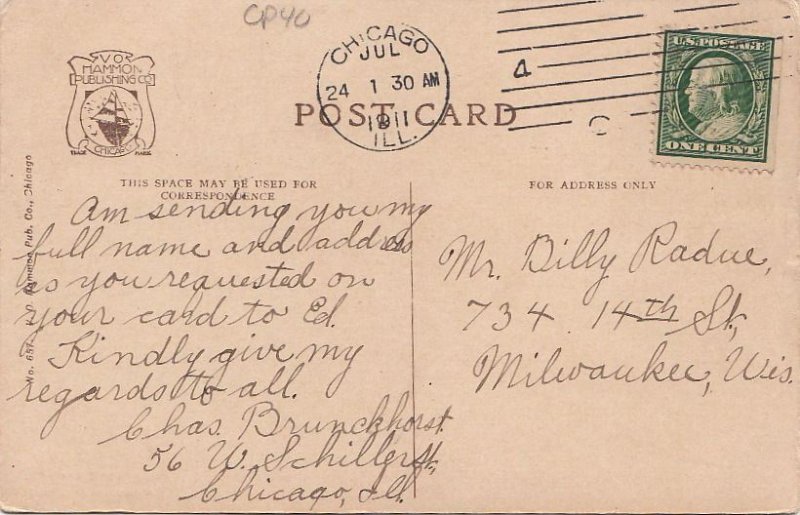 CP40
V.O.
HAMMON
PUBLISHING CO.
CHICAGO
TRADE MARK
CHICAGO
JUL
24 1 30 AM
1911
ILL.
4
C
U.S. POSTAGE
ONE CENT
POST CARD
THIS SPACE MAY BE USED FOR
CORRESPONDENCE
FOR ADDRESS ONLY
Am sending you my
full name and address
as you requested on
your card to Ed.
Kindly give my
regards to all.
Chas. Brunckhorst
56 W. Schiller St,
Chicago, Ill.
Mr. Billy Radue,
734 14th St,
Milwaukee, Wis.
No. 657 Hammon Pub. Co., Chicago